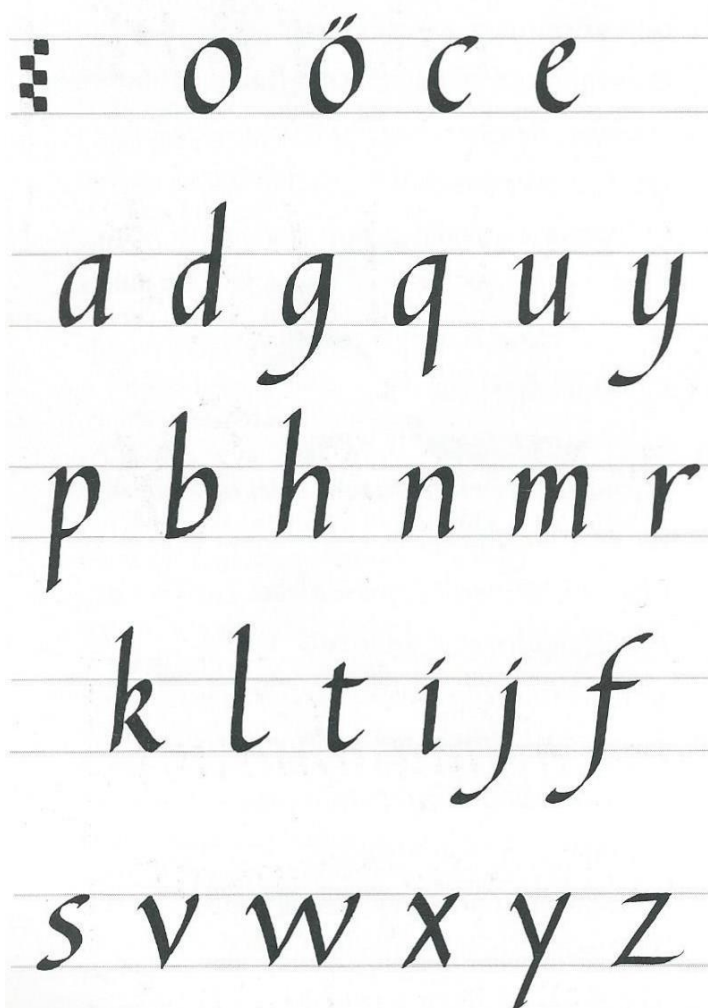 o ő c e
a d g q u y
p b h n m r
k l t i j f
s v w x y z